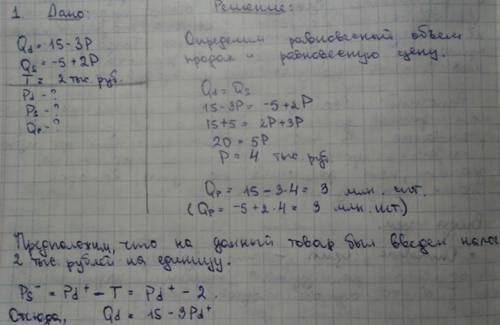 1. Дано:
Решение:
Qd = 15 - 3P
Qs = -5 + 2P
T = 2 тыс. руб.
Pd - ?
Ps - ?
Qp - ?
Определим равновесный объем
продаж и равновесную цену.
Qd = Qs
15 - 3P = -5 + 2P
15 + 5 = 2P + 3P
20 = 5P
P = 4 тыс руб
Qp = 15 - 3·4 = 3 млн. шт.
(Qp = -5 + 2·4 = 3 млн. шт)
Предположим, что на данный товар был введен нало
2 тыс. рублей на единицу.
Ps⁻ = Pd⁺ - T = Pd⁺ - 2.
Отсюда, Qd = 15 - 3Pd⁺